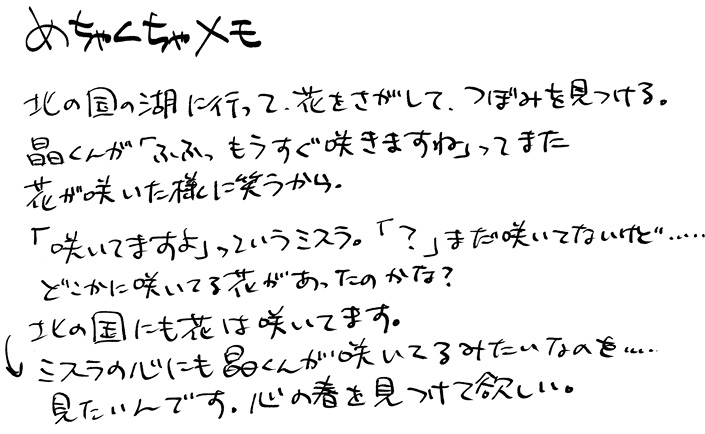 めちゃくちゃメモ
北の国の湖に行って、花をさがして、つぼみを見つける。
晶くんが「ふふっ もうすぐ咲きますね」ってまた
花が咲いた様に笑うから、
「咲いてますよ」っていうミスラ。「?」まだ咲いてないけど……
どこかに咲いてる花があったのかな?
北の国にも花は咲いてます。
ミスラの心にも晶くんが咲いてるみたいなのを……
見たいんです。心の春を見つけて欲しい。